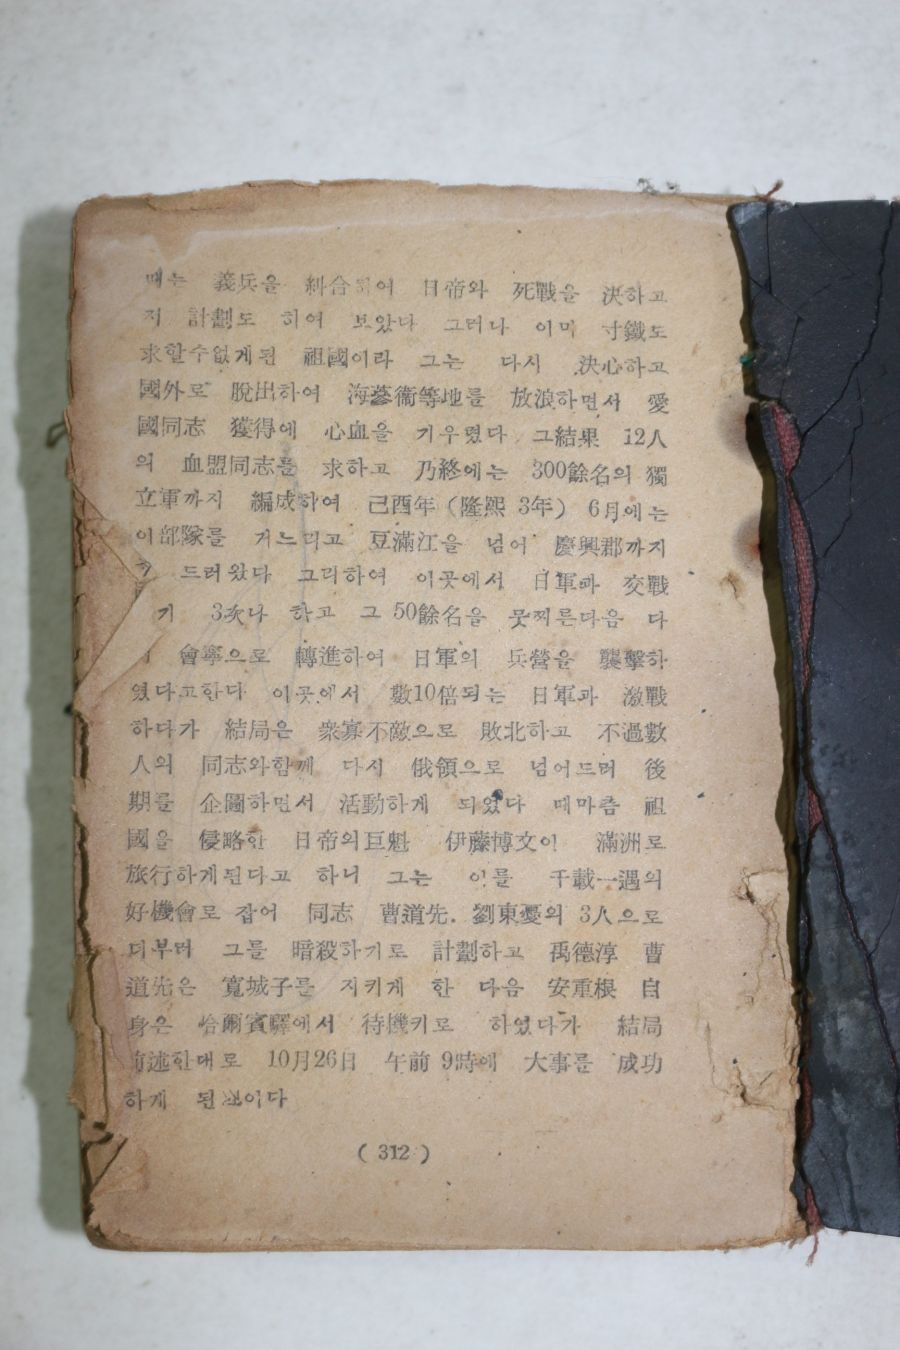 때는 義兵을 糾合하여 日帝와 死戰을 決하고
저 計劃도 하여 보았다 그러나 이미 寸鐵도
求할수없게된 祖國이라 그는 다시 決心하고
國外로 脫出하여 海蔘衛等地를 放浪하면서 愛
國同志 獲得에 心血을 기우렸다 그結果 12人
의 血盟同志를 求하고 乃終에는 300餘名의 獨
立軍까지 編成하여 己酉年 (隆熙 3年) 6月에는
이部隊를 거느리고 豆滿江을 넘어 慶興郡까지
드러왔다 그리하여 이곳에서 日軍과 交戰
기 3次나 하고 그 50餘名을 뭇찌른다음 다
會寧으로 轉進하여 日軍의 兵營을 襲擊하
였다고한다 이곳에서 數10倍되는 日軍과 激戰
하다가 結局은 衆寡不敵으로 敗北하고 不過數
人의 同志와함께 다시 俄領으로 넘어드러 後
期를 企圖하면서 活動하게 되였다 때마츰 祖
國을 侵略한 日帝의巨魁 伊藤博文이 滿洲로
旅行하게된다고 하니 그는 이를 千載一遇의
好機會로 잡어 同志 曹道先. 劉東憂의 3人으로
더부러 그를 暗殺하기로 計劃하고 禹德淳 曹
道先은 寬城子를 지키게 한 다음 安重根 自
身은 哈爾賓驛에서 待機키로 하였다가 結局
前述한대로 10月26日 午前 9時에 大事를 成功
하게 된것이다
( 312 )